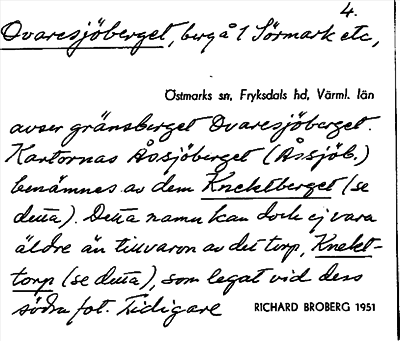 4.
Dvaresjöberget, berg å 1 Sörmark etc,
Östmarks sn, Fryksdals hd, Värml. län
avser gränsberget Dvaresjöberget.
Kartornas Åssjöberget (Åssjöb.)
benämnes av dem Knektberget (se
detta). Detta namn kan dock ej vara
äldre än tillvaron av det torp, Knekt-
torp (se detta), som legat vid dess
södra fot. Tidigare RICHARD BROBERG 1951